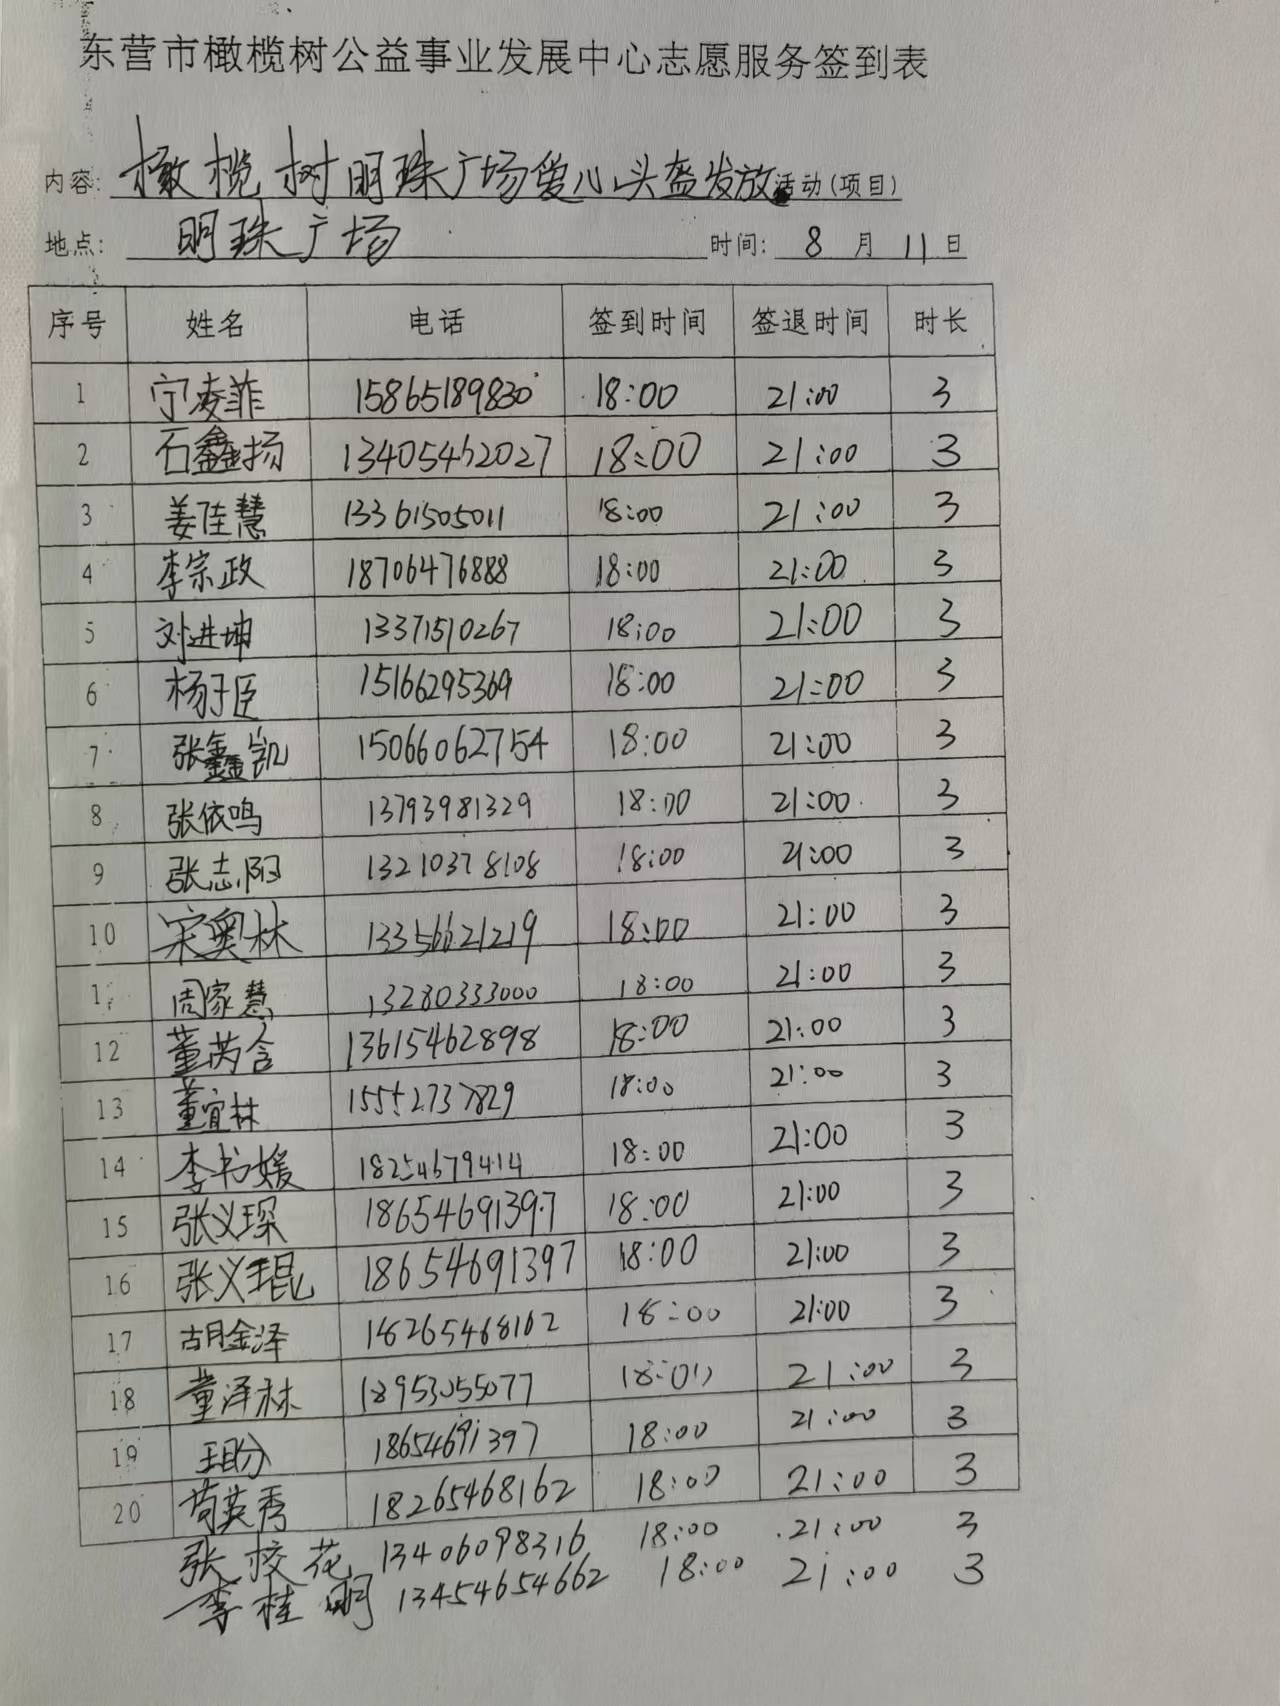 东营市橄榄树公益事业发展中心志愿服务签到表
内容: 橄榄树明珠广场爱心头盔发放活动(项目)
地点: 明珠广场 时间: 8 月 11 日
序号 姓名 电话 签到时间 签退时间 时长
1 宁凌菲 15865189830 18:00 21:00 3
2 石鑫扬 13405462027 18:00 21:00 3
3 姜佳慧 13361505011 18:00 21:00 3
4 李宗政 18706476888 18:00 21:00 3
5 刘进坤 13371510267 18:00 21:00 3
6 杨于臣 15166295369 18:00 21:00 3
7 张鑫凯 15066062754 18:00 21:00 3
8 张依鸣 13793981329 18:00 21:00 3
9 张志阳 13210378108 18:00 21:00 3
10 宋奥林 13356621219 18:00 21:00 3
周家慧 13280333000 18:00 21:00 3
12 董芮含 13615462898 18:00 21:00 3
13 董宜林 15552737829 18:00 21:00 3
14 李书媛 18254679414 18:00 21:00 3
15 张义琛 18654691397 18:00 21:00 3
16 张义琨 18654691397 18:00 21:00 3
17 胡金泽 18265468162 18:00 21:00 3
18 董泽林 18953055077 18:00 21:00 3
19 王盼 18654691397 18:00 21:00 3
20 苟英秀 18265468162 18:00 21:00 3
张校花 13406098316 18:00 21:00 3
李桂明 13454654662 18:00 21:00 3